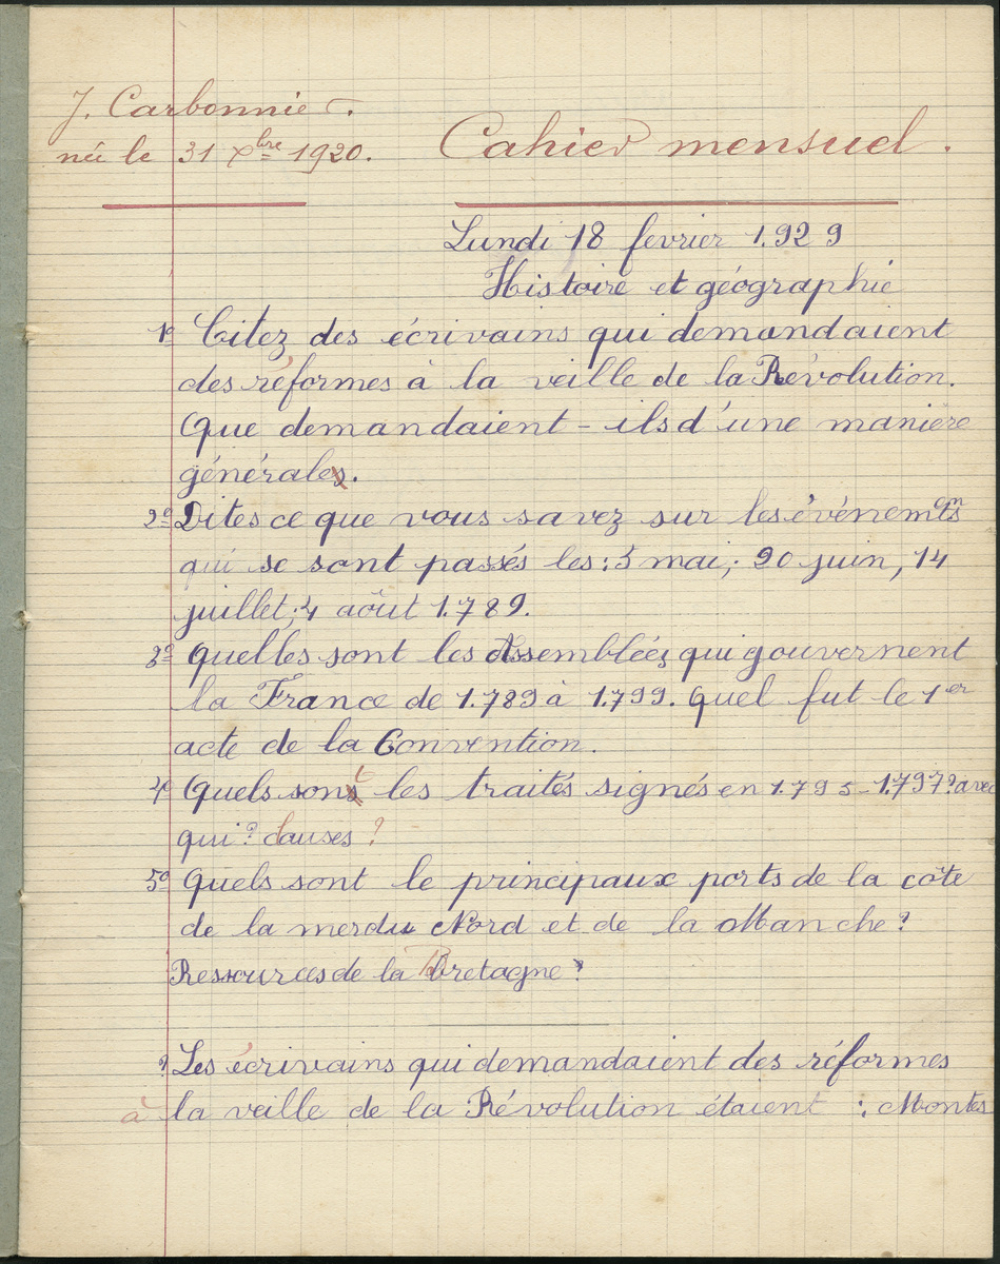 J. Carbonnier.
née le 31 Xbre 1920.
Cahier mensuel.
Lundi 18 fevrier 1.929
Histoire et géographie
1º Citez des écrivains qui demandaient
des réformes à la veille de la Révolution.
Que demandaient-ils d'une manière
générale.
2º Dites ce que vous savez sur les événements
qui se sont passés les : 5 mai ; 20 juin, 14
juillet ; 4 août 1.789.
3º Quelles sont les Assemblées qui gouvernent
la France de 1.789 à 1.799. Quel fut le 1er
acte de la Convention.
4º Quels sont les traités signés en 1.795-1.797? avec
qui? clauses ?
5º Quels sont le principaux ports de la côte
de la mer du Nord et de la Manche ?
Ressources de la Bretagne ?
Les écrivains qui demandaient des réformes
à la veille de la Révolution étaient : Montes